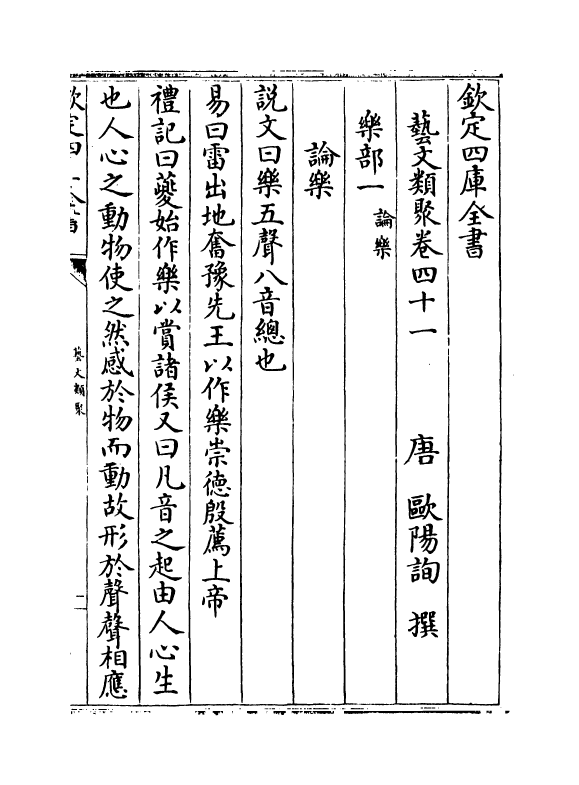 欽定四庫全書
藝文類聚卷四十一　唐　歐陽詢　撰
樂部一　論樂
論樂
説文曰樂五聲八音總也
易曰雷出地奮豫先王以作樂崇德殷薦上帝
禮記曰夔始作樂以賞諸侯又曰凡音之起由人心生
也人心之動物使之然感於物而動故形於聲聲相應
藝文類聚